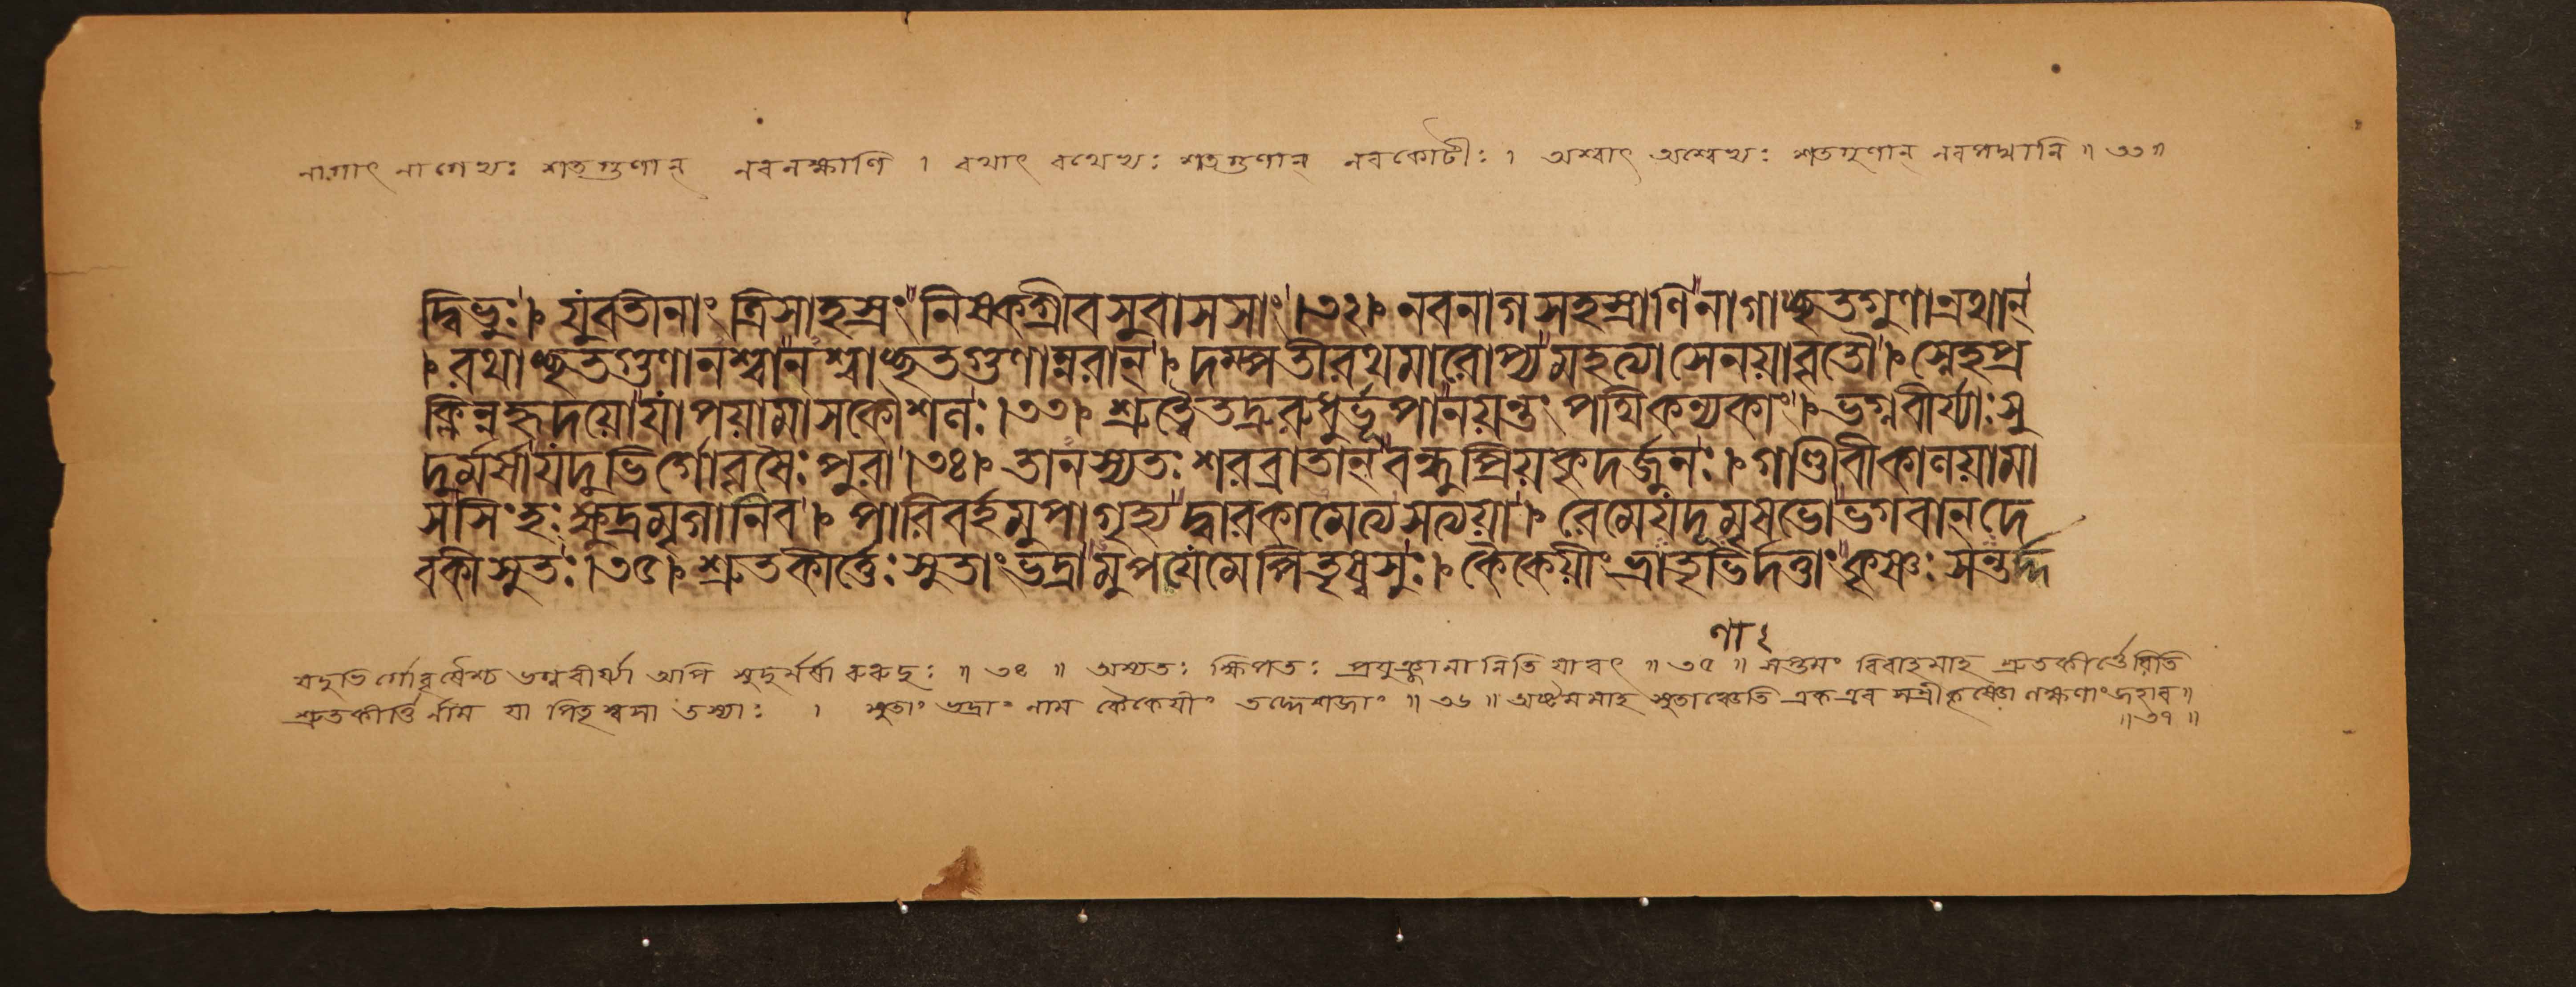 নাগাৎ নাগেভ্যঃ শতগুণান্ নবলক্ষাণি । রথাৎ রথেভ্যঃ শতগুণান্ নবকোটীঃ । অশ্বাৎ অশ্বেভ্যঃ শতগুণান্ নবপদ্মানি ॥ ৩৩॥
দ্বিভুঃ। যুবতীনাং ত্রিসাহস্রং নিষ্কগ্রীবসুবাসসাং ।৩২। নবনাগসহস্রাণি নাগাচ্ছতগুণান্রথান্
। রথাচ্ছতগুণানশ্বানশ্বাচ্ছতগুণান্নরান্। দম্পতীরথমারোপ্য মহত্যাসেনয়াবৃতৌ। স্নেহপ্র
ক্লিন্নহৃদয়ো যাপয়ামাসকৌশলঃ।৩৩। শ্রুত্বৈতদ্রুরুধুর্ভূপানয়ন্তং পথিকন্যকাং। ভগ্নবীর্য্যাঃসু
দুর্মর্ষাযদুভির্গোবৃষৈঃ পুরা।৩৪। তানস্যতঃ শরব্রাতান্ বন্ধুপ্রিয়কৃদর্জুনঃ। গাণ্ডিবীকালয়ামা
সসিংহঃ ক্ষুদ্রমৃগানিব। পারিবর্হমুপাগৃহ্য দ্বারকামেত্যসত্যয়া। রেমেযদূমৃষভোভগবান্ দে
বকীসুতঃ।৩৫। শ্রুতকীর্ত্তেঃসুতাং ভদ্রামুপযেমেপিতৃষ্বসুঃ। কৈকেয়ীং ভ্রাতৃভির্দত্তাং কৃষ্ণঃ সন্তর্দ্দ
ণা২
যদুভির্গোবৃষৈশ্চ ভগ্নবীর্য্যা অপি সুদুর্মর্ষা রুরুধুঃ ॥ ৩৪ ॥ অস্যতঃ ক্ষিপতঃ প্রযুঞ্জানানিতি যাবৎ ॥ ৩৫ ॥ সপ্তমং বিবাহমাহ শ্রুতকীর্ত্তেরিতি
শ্রুতকীর্ত্তির্নাম যা পিতৃষ্বসা তস্যাঃ । সুতাং ভদ্রাং নাম কৈকেয়ীং তদ্দেশজাং ॥ ৩৬ ॥ অষ্টমমাহ সুতাঞ্চেতি এক এব স শ্রীকৃষ্ণো লক্ষণাং জহার॥
॥৩৭॥